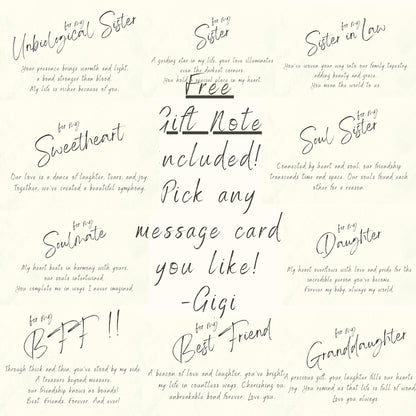 for my
Unbiological Sister
Your presence brings warmth and light,
a bond stronger than blood.
My life is richer because of you.
for my
Sister
A guiding star in my life, your love illuminates
even the darkest corners.
You hold a special place in my heart.
for my
Sister in Law
You've woven your way into our family tapestry,
adding beauty and grace.
You mean the world to us.
for my
Sweetheart
Our love is a dance of laughter, tears, and joy.
Together, we've created a beautiful symphony.
Free
Gift Note
included!
Pick any
message card
you like!
-Gigi
for my
Soul Sister
Connected by heart and soul, our friendship
transcends time and space. Our souls found each
other for a reason.
for my
Soulmate
My heart beats in harmony with yours,
our souls intertwined.
You complete me in ways I never imagined.
for my
Daughter
My heart overflows with love and pride for the
incredible person you've become.
Forever my baby, always my world.
for my
BFF !!
Through thick and thin, you've stood by my side.
A treasure beyond measure,
our friendship knows no bounds!
Best. Friends. Forever. And ever!
for my
Best Friend
A beacon of love and laughter, you've brightened
my life in countless ways. Cherishing our
unbreakable bond forever. Love you.
for my
Granddaughter
A precious gift, your laughter fills our hearts
joy. You remind us that life is full of wond
Love you always.